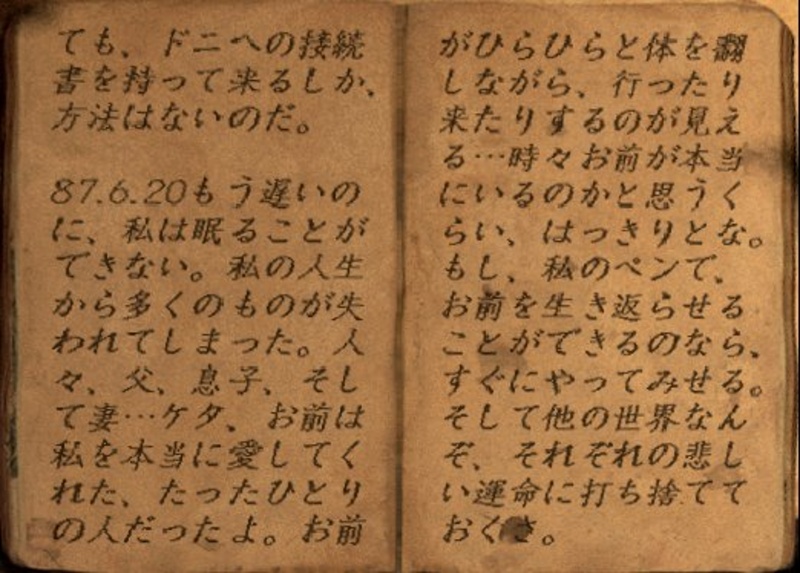 ても、ドニへの接続
書を持って来るしか、
方法はないのだ。
87.6.20もう遅いの
に、私は眠ることが
できない。私の人生
から多くのものが失
われてしまった。人
々、父、息子、そし
て妻…ケタ、お前は
私を本当に愛してく
れた、たったひとり
の人だったよ。お前
がひらひらと体を翻
しながら、行ったり
来たりするのが見え
る…時々お前が本当
にいるのかと思うく
らい、はっきりとな。
もし、私のペンで、
お前を生き返らせる
ことができるのなら、
すぐにやってみせる。
そして他の世界なん
ぞ、それぞれの悲し
い運命に打ち捨てて
おくさ。